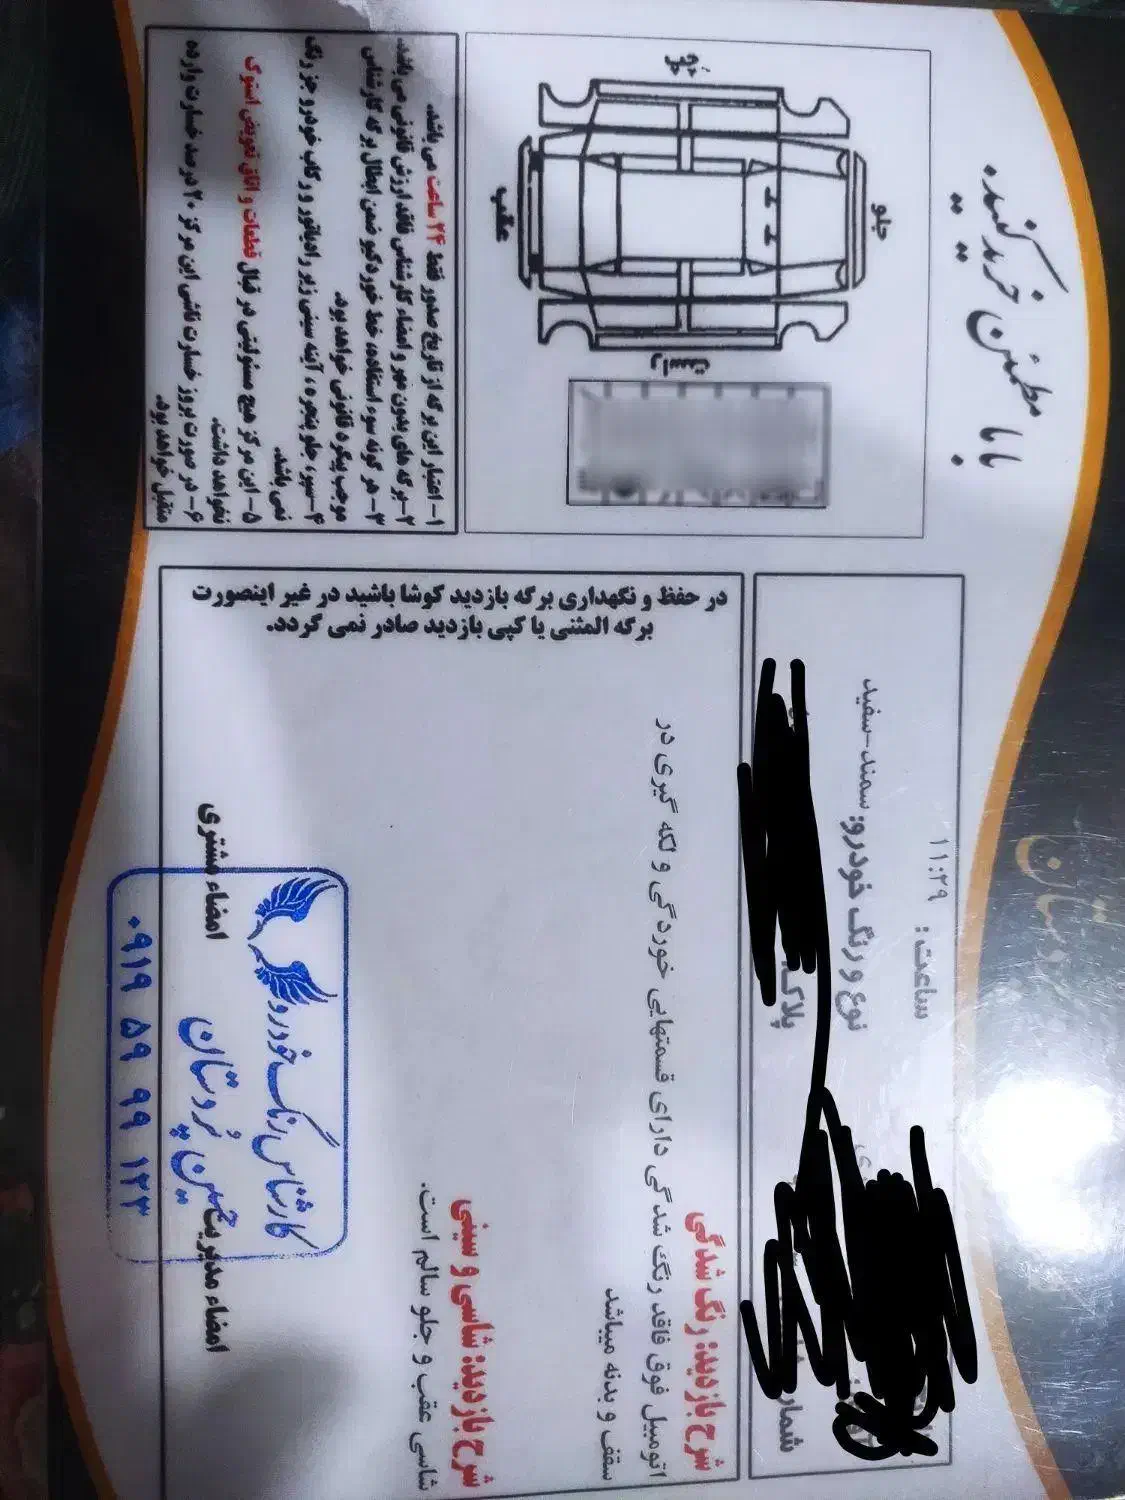 با ما مطمئن خرید کنید
ساعت: ۱۱:۲۹
نوع و رنگ خودرو: سمند-سفید
پلاک:
شمار
شرح بازدید: رنگ شدگی
اتومبیل فوق فاقد رنگ شدگی دارای قسمتهایی خوردگی و لکه گیری در
سقف و بدنه میباشد
شرح بازدید: شاسی و سینی
شاسی عقب و جلو سالم است.
امضاء مدیریت
امضاء مشتری
کارشناس رنگ خودرو
حسین پُردستان
۰۹۱۹ ۵۹ ۹۹ ۱۳۳
در حفظ و نگهداری برگه بازدید کوشا باشید در غیر اینصورت
برگه المثنی یا کپی بازدید صادر نمی گردد.
چپ
جلو
عقب
راست
۱- اعتبار این برگه از تاریخ صدور فقط ۲۴ ساعت می باشد.
۲- برگه های بدون مهر و امضاء کارشناس فاقد ارزش قانونی می باشد.
۳- هر گونه سوء استفاده، خط خوردگی و ضمن ابطال برگه کارشناس
موجب پیگرد قانونی خواهد بود.
۴- سپر، جلو پنجره، آینه سینی زیر رادیاتور و رکاب خودرو جز رنگ
نمی باشد.
۵- این مرکز هیچ مسئولیتی در قبال قطعات و اتاق تعویض استوک
نخواهد داشت.
۶- در صورت بروز خسارت ناشی این مرکز ۲۰ درصد خسارت وارده
متقبل خواهد بود.